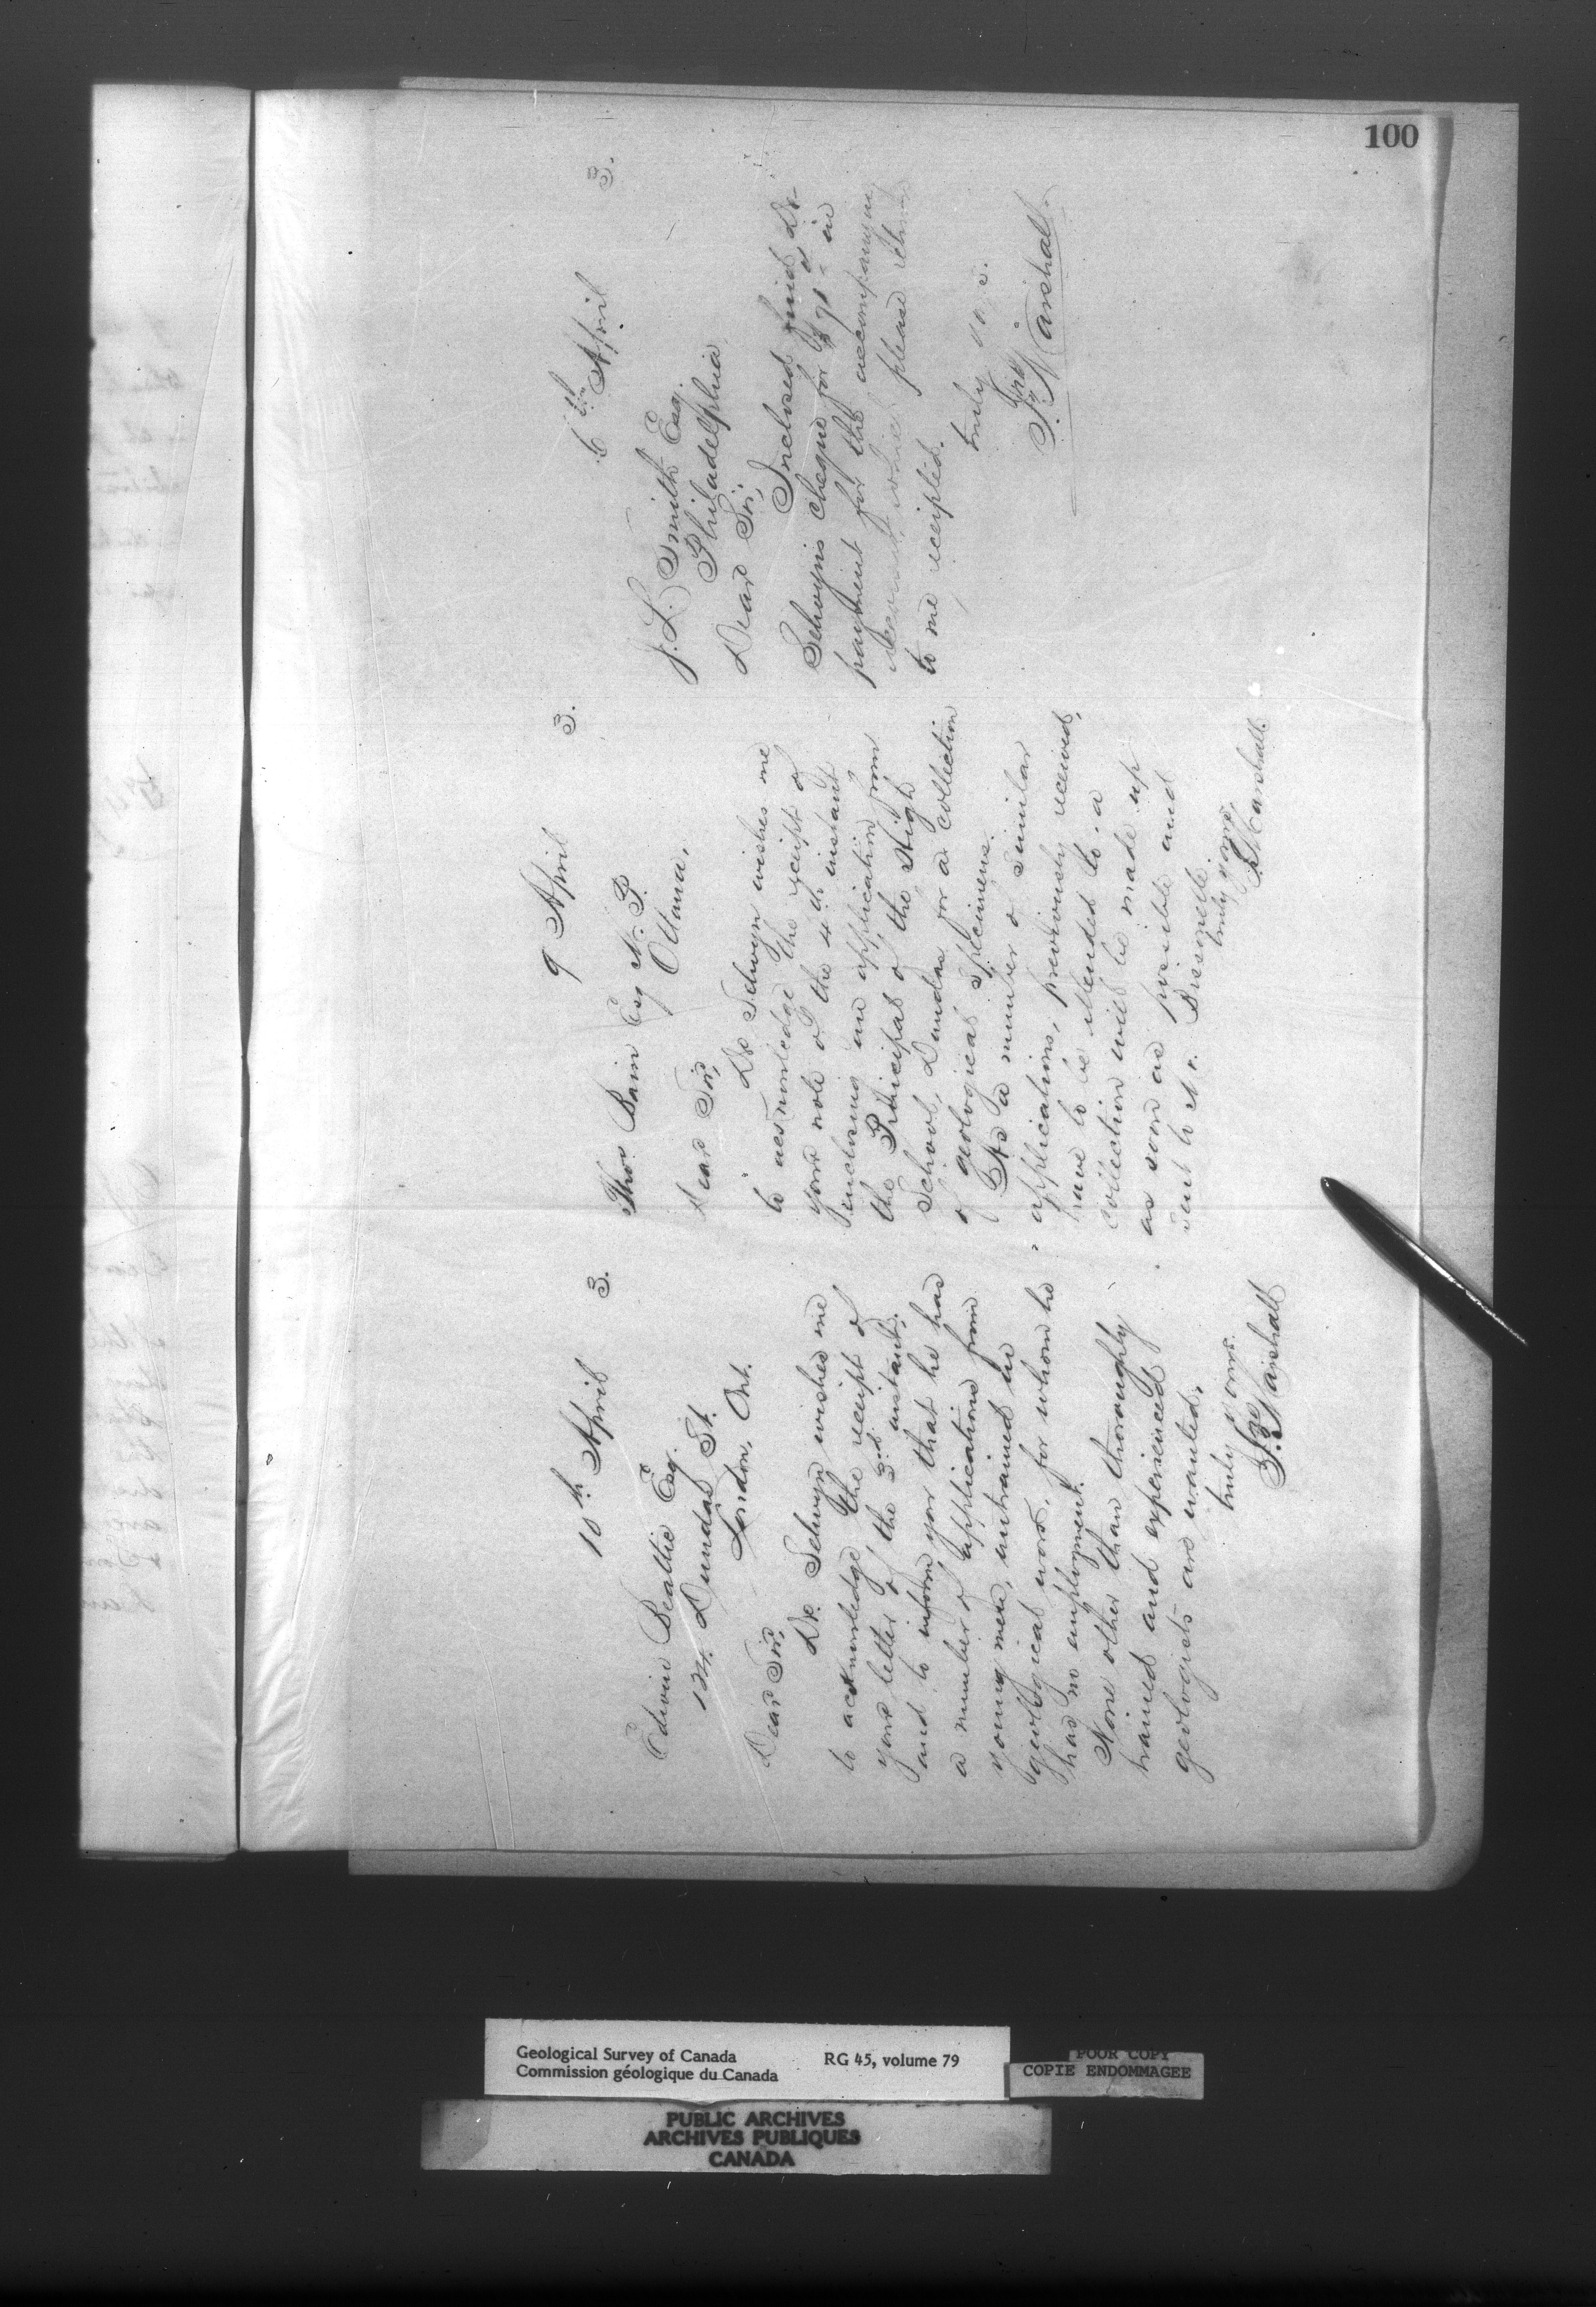 100
10th April 3.
Edwin Beattie Esq.
124 Dundas St.
London, Ont.
Dear Sir,
Dr. Selwyn wishes me
to acknowledge the receipt of
your letter of the 3rd instant,
and to inform you that he has
a number of applications from
young men, untrained in
geological work, for whom he
has no employment.
None other than thoroughly
trained and experienced
geologists are wanted.
truly yours.
Jno Marshall
9 April 3.
Thos Bain Esq M.P.
Ottawa,
Dear Sir,
Dr Selwyn wishes me
to acknowledge the receipt of
your note of the 4th instant
enclosing an application from
the Principal of the High
School, Dundas for a collection
of geological specimens.
As a number of similar
applications, previously received,
have to be attended to a
collection will be made up
as soon as possible and
sent to Mr.
truly yours,
J. Marshall.
6th April 3.
J. L. Smith Esq.
Philadelphia
Dear Sir,
Inclosed find Dr
Selwyn's cheque for in
payment for the accompanying
account, which please return
to me receipted.
truly yours.
Jno Marshall
Geological Survey of Canada RG 45, volume 79
Commission géologique du Canada
POOR COPY
COPIE ENDOMMAGEE
PUBLIC ARCHIVES
ARCHIVES PUBLIQUES
CANADA